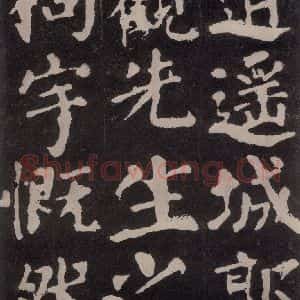 逍遥城郭
觀先生之
祠宇慨然
Shufawang.Cn